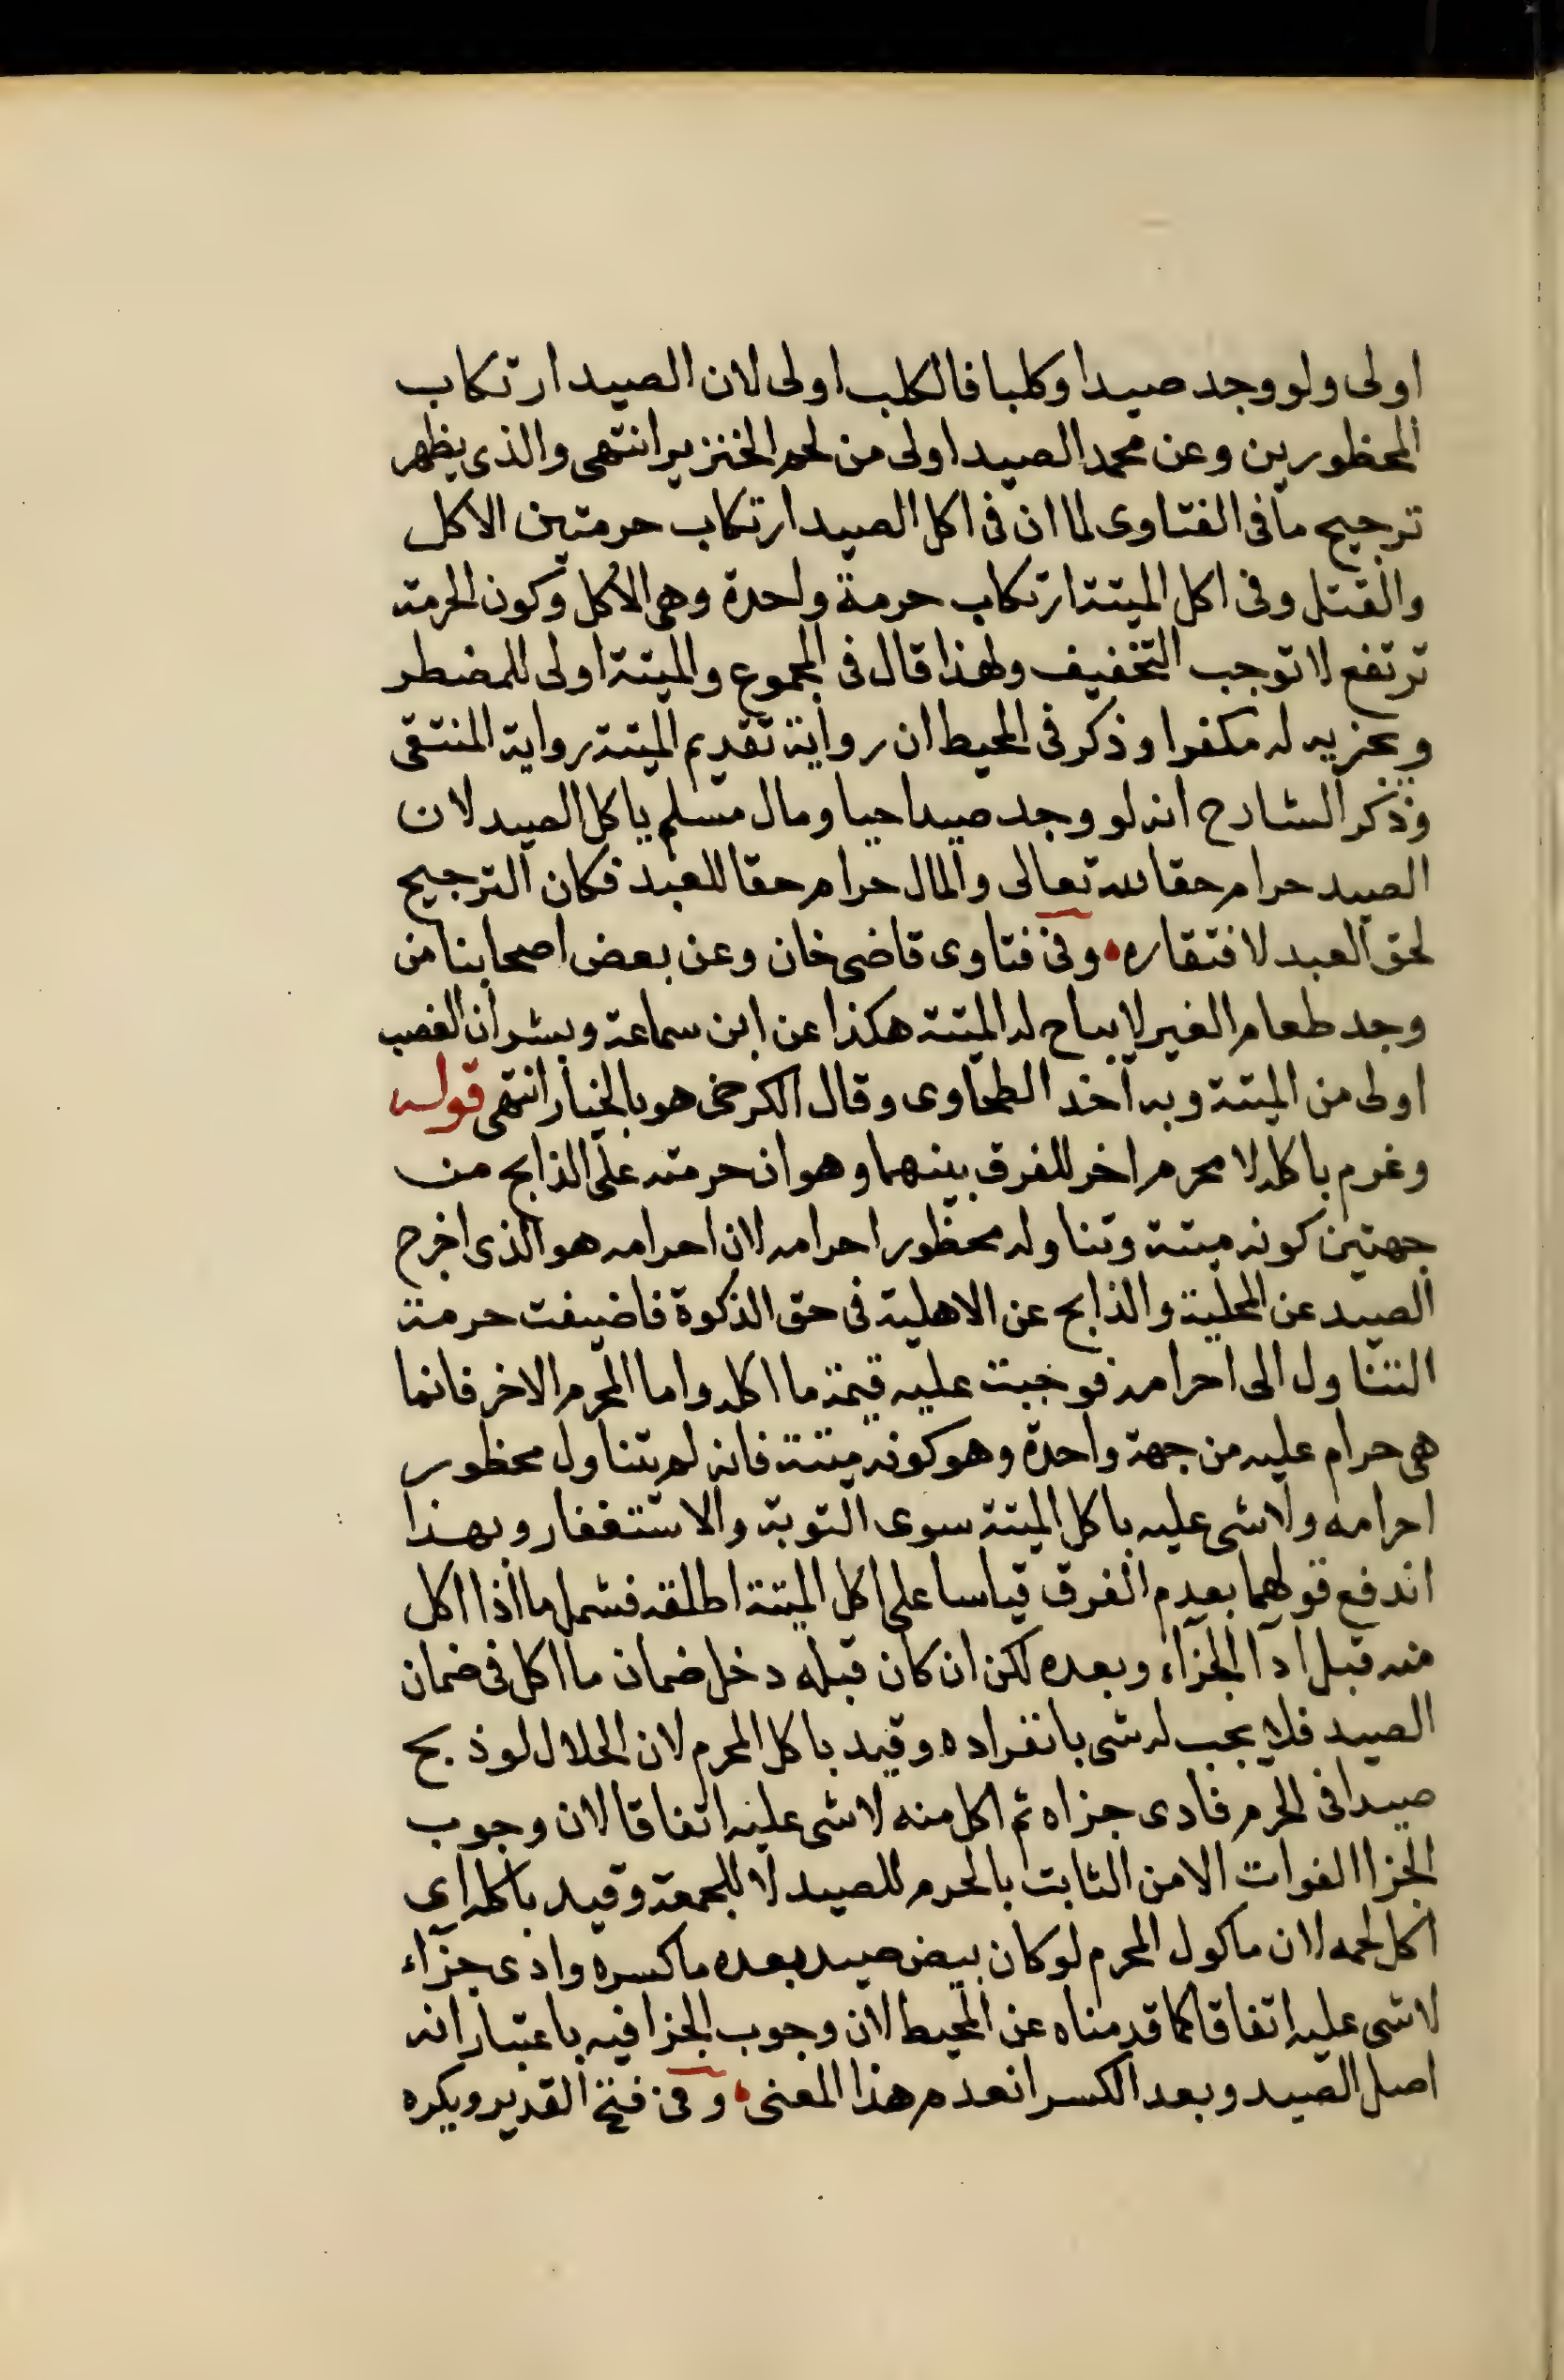 اولى ولو وجد صيدا وكلبا فالكلب اولى لان الصيد ارتكاب
المحظورين وعن محمد الصيد اولى من لحم الخنزير انتهى والذى يظهر
ترجيح ما فى الفتاوى لما ان فى اكل الصيد ارتكاب حرمتين الاكل
والقتل وفى اكل الميتة ارتكاب حرمة واحدة وهى الاكل وكون الحرمة
ترتفع لا توجب التخفيف ولهذا قال فى المجموع والميتة اولى للمضطر
ويجزيه له مكفرا وذكر فى المحيط ان رواية تقديم الميتة رواية المنتقى
وذكر الشارح انه لو وجد صيدا حيا ومال مسلم ياكل الصيد لان
الصيد حرام حقا لله تعالى والمال حرام حقا للعبد فكان الترجيح
لحق العبد لافتقاره وفى فتاوى قاضى خان وعن بعض اصحابنا من
وجد طعام الغير لا يباح له الميتة هكذا عن ابن سماعة وبشر ان الغصب
اولى من الميتة وبه اخذ الطحاوى وقال الكرخى هو بالخيار انتهى قوله
وغرم باكله لا محرم اخر للفرق بينهما وهو ان حرمته على الذابح من
جهتين كونه ميتة وتناوله محظور احرامه لان احرامه هو الذى اخرج
الصيد عن المحلية والذابح عن الاهلية فى حق الذكوة فاضيفت حرمة
التناول الى احرامه فوجبت عليه قيمة ما اكله واما المحرم الاخر فانما
هى حرام عليه من جهة واحدة وهو كونه ميتة فانه لم يتناول محظور
احرامه ولا شى عليه باكل الميتة سوى التوبة والاستغفار وبهذا
اندفع قولهما بعدم الفرق قياسا على اكل الميتة اطلقه فشمل ما اذا اكل
منه قبل ادآ الجزآء وبعده لكن ان كان قبله دخل ضمان ما اكل فى ضمان
الصيد فلا يجب له شى بانفراده وقيد باكل المحرم لان الحلال لو ذبح
صيدا فى الحرم فادى جزاه ثم اكل منه لا شى عليه اتفاقا لان وجوب
الجزا الفوات الامن الثابت بالحرم للصيد لا للجمعة وقيد باكله اى
اكل لحمه لان ماكول المحرم لو كان بيض صيد بعده ما كسره وادى جزآء
لا شى عليه اتفاقا كما قدمناه عن المحيط لان وجوب الجزا فيه باعتبار انه
اصل الصيد وبعد الكسر انعدم هذا المعنى وفى فتح القدير ويكره